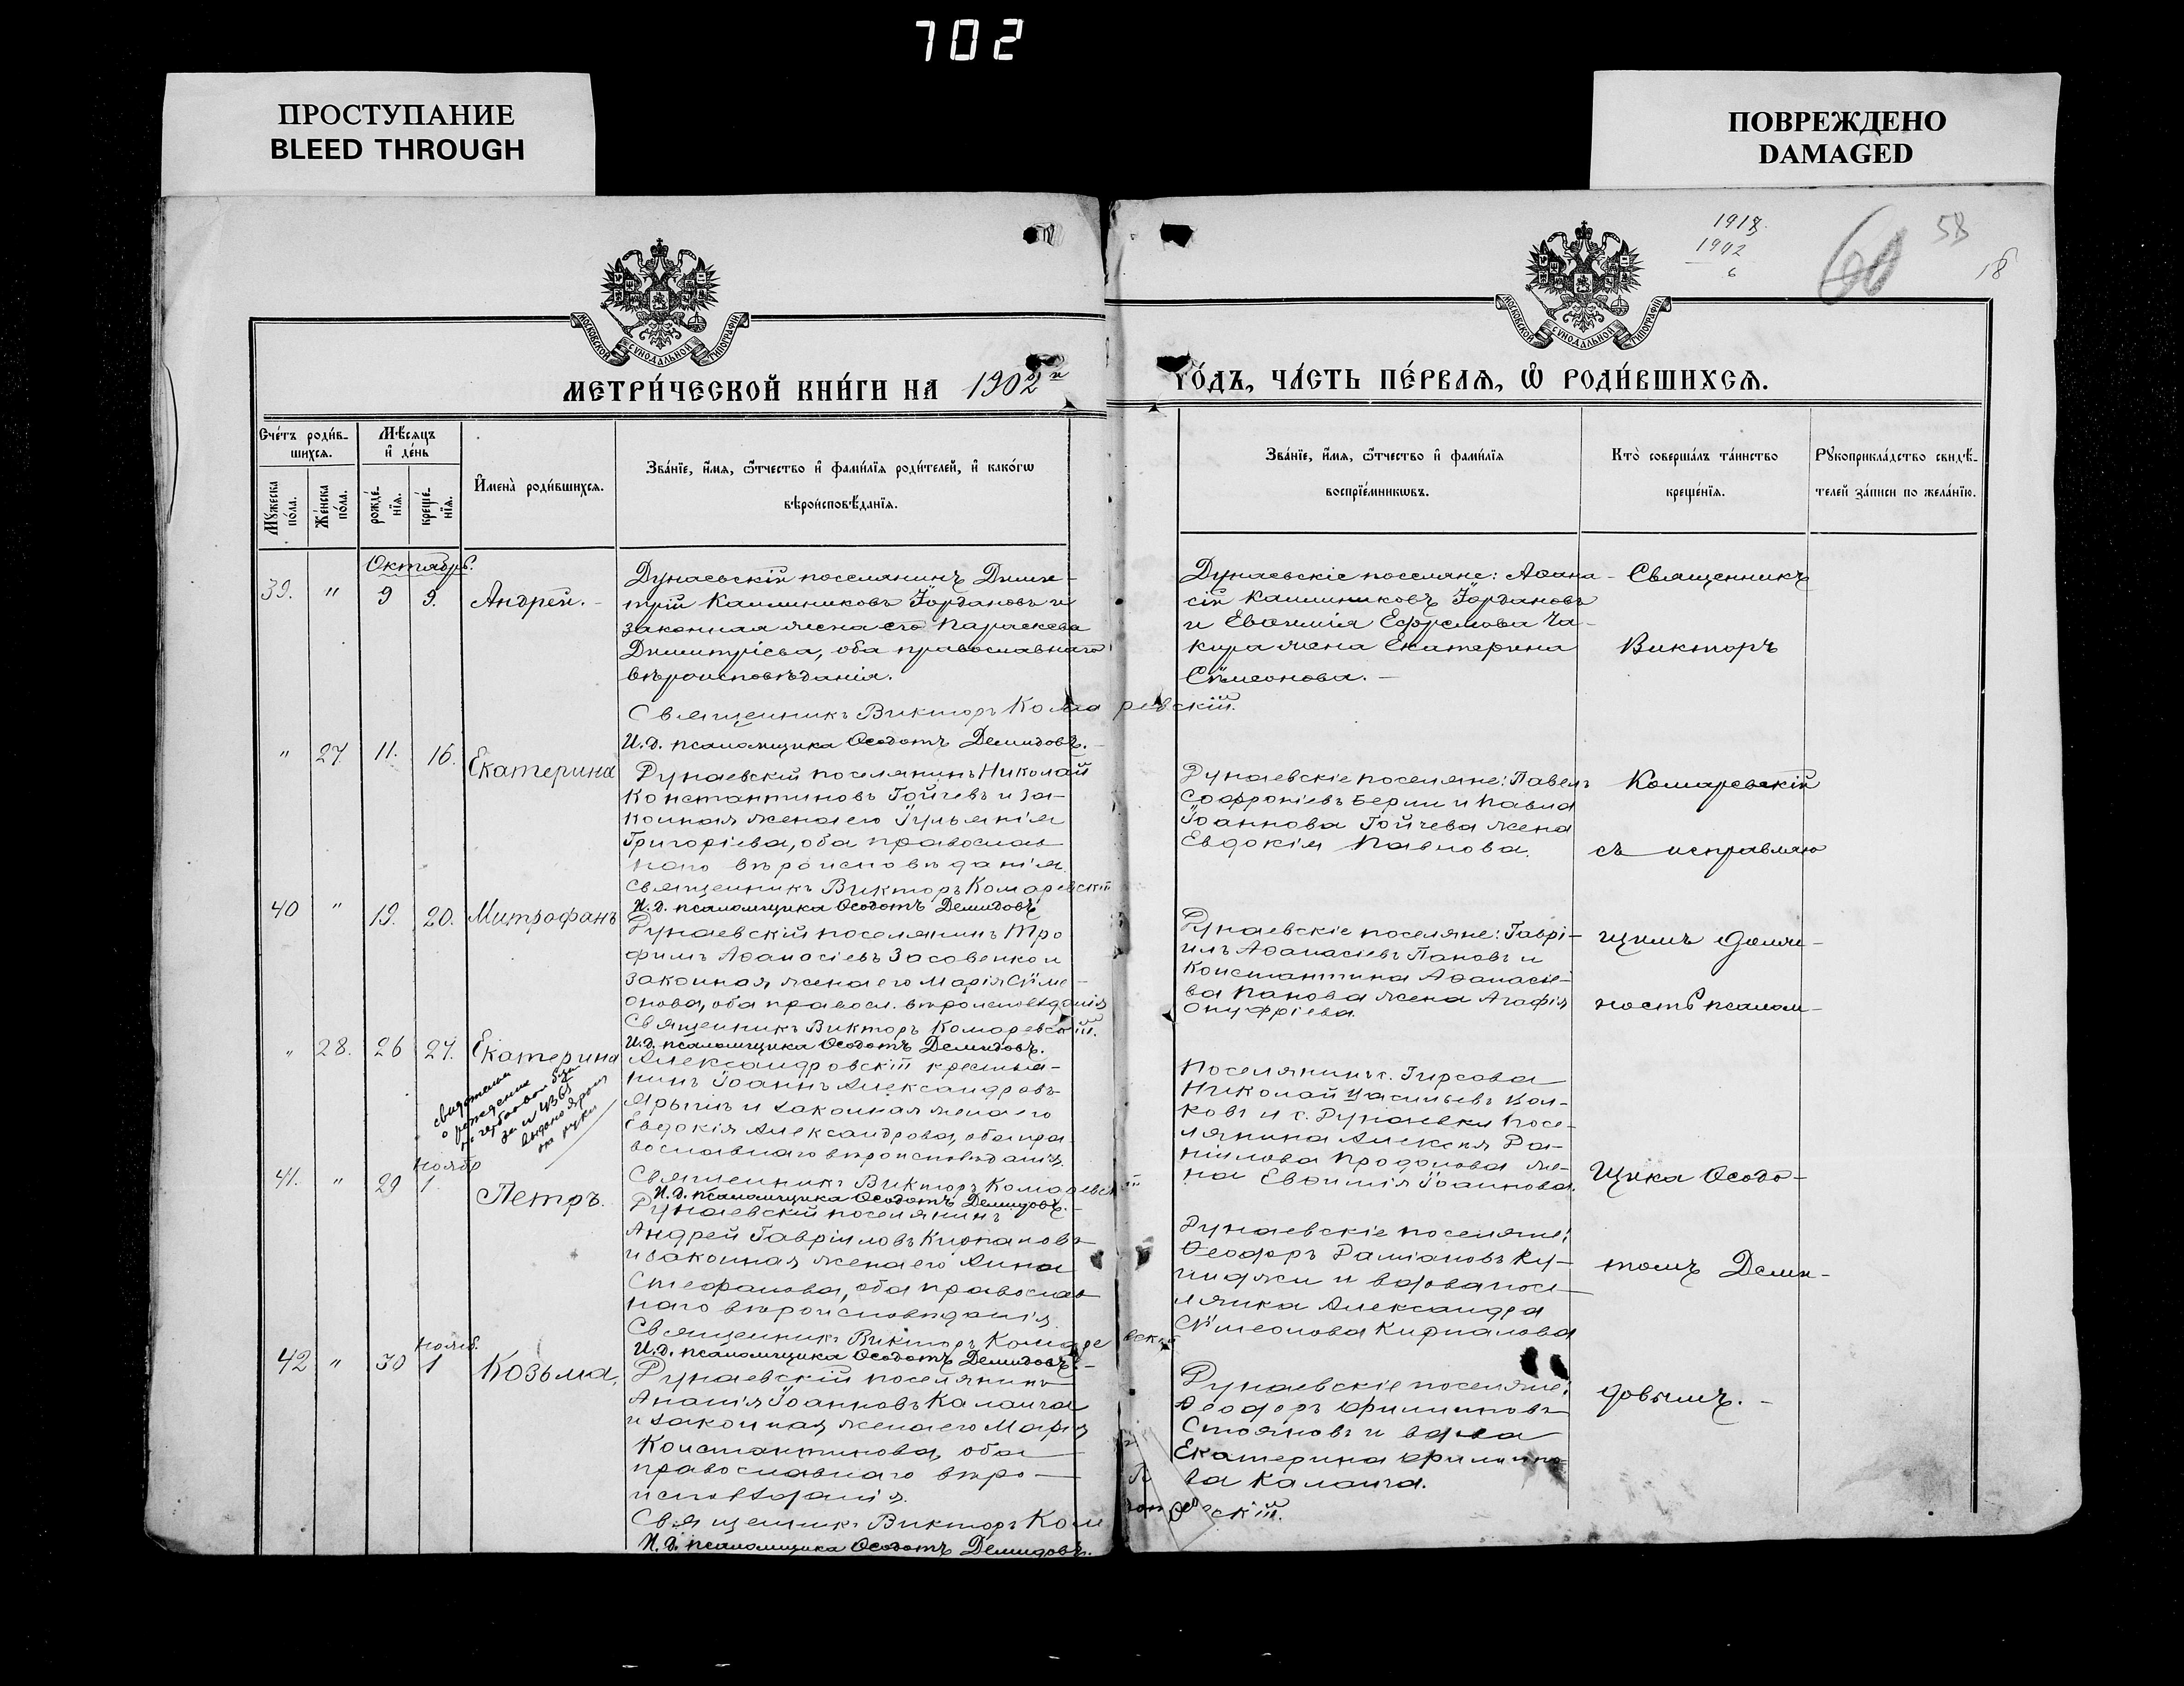 702
ПРОСТУПАНИЕ
BLEED THROUGH
ПОВРЕЖДЕНО
DAMAGED
1902
6
60
58
МОСКОВСКОЙ СѴНОДАЛЬНОЙ ТИПОГРАФІИ
МОСКОВСКОЙ СѴНОДАЛЬНОЙ ТИПОГРАФІИ
МЕТРИ́ЧЕСКОЙ КНИ́ГИ НА 1902й
ГО́ДЪ, ЧА́СТЬ ПЕ́РВАѦ, Ѽ РОДИ́ВШИХСѦ.
Сче́тъ роди́в-
шихсѧ.
Мꙋ́жеска по́ла.
Же́нска по́ла.
Мѣ́сѧцъ
и҆ де́нь
рожде́-
нїѧ.
креще́-
нїѧ.
И҆мена̀ роди́вшихсѧ.
Зва́нїе, и҆́мѧ, ѻ҆́тчество и҆ фами́лїѧ роди́телей, и҆ како́гѡ
вѣроисповѣ́данїѧ.
Зва́нїе, и҆́мѧ, ѻ҆́тчество и҆ фами́лїѧ
воспрїе́мникѡвъ.
Кто̀ соверша́лъ та́инство
креще́нїѧ.
Рꙋкоприкла́дство свидѣ́-
телей за́писи по жела́нїю.
Октябрь.
39. " 9 9. Андрей.
Дунаевскій поселянинъ Дими-
трій Калинниковъ Іордановъ и
законная жена его Параскева
Димитріева, оба православнаго
вѣроисповѣданія.
Священникъ Викторъ Комаревскій.
И.д. псаломщика Ѳеодотъ Демидовъ.
Дунаевскіе поселяне: Аѳана-
сій Калинниковъ Іордановъ
и Евѳимія Ефремова Ча-
кира жена Екатерина
Сѵмеонова.
Священникъ
Викторъ
Комаревскій
съ исправляю
щимъ долж-
ность псалом-
щика Ѳеодо-
томъ Деми-
довымъ.
" 27 11. 16. Екатерина
Дунаевскій поселянинъ Николай
Константиновъ Гойчевъ и за-
конная жена его Іуліанія
Григоріева, оба православ
наго вѣроисповѣданія
Священникъ Викторъ Комаревскій
И.д. псаломщика Ѳеодотъ Демидовъ
Дунаевскіе поселяне: Павелъ
Софроніевъ Берш и Павла
Іоаннова Гойчева жена
Евдокія Павлова.
40 " 19. 20. Митрофанъ
Дунаевскій поселянинъ Тро
фимъ Аѳанасіевъ Засовенко и
законная жена его Марія Сѵме-
онова, оба правосл. вѣроисповѣданія
Священникъ Викторъ Комаревскій.
И.д. псаломщика Ѳеодотъ Демидовъ.
Дунаевскіе поселяне: Гаврі-
илъ Аѳанасіевъ Пановъ и
Константина Аѳанасіе-
ва Панова жена Агафія
Онуфріева.
" 28. 26 27. Екатерина
Александровскій крестья-
нинъ Іоаннъ Александровъ
Ярыгинъ и законная жена его
Евдокія Александрова, оба пра
вославнаго вѣроисповѣданія.
Священникъ Викторъ Комаревскій
И.д. псаломщика Ѳеодотъ Демидовъ.
Поселянинъ с. Гирсова
Николай Васильевъ Вол-
ковъ и с. Дунаевки посе-
лянина Алексѣя Да-
ніилова Продонова же-
на Евѳимія Іоаннова.
41. " 29 Ноябр 1 Петръ.
Дунаевскій поселянинъ
Андрей Гавріиловъ Кирпановъ
и законная жена его Анна
Стефанова, оба православ
наго вѣроисповѣданія
Священникъ Викторъ Комаревскій
И.д. псаломщика Ѳеодотъ Демидовъ.
Дунаевскіе поселяне:
Ѳеодоръ Даміановъ Ку-
инджи и вдова посе-
лянка Александра
Сѵмеонова Кирпалова
42 " 30 Нояб. 1 Козьма.
Дунаевскій поселянинъ
Ананія Іоанновъ Каланча
и законная жена его Марія
Константинова, оба
православнаго вѣро-
исповѣданія.
Священникъ Викторъ Комаревскій.
И.д. псаломщика Ѳеодотъ Демидовъ.
Дунаевскіе поселяне:
Ѳеодоръ Филипповъ
Стояновъ и вдова
Екатерина Филиппо-
ва Каланча.